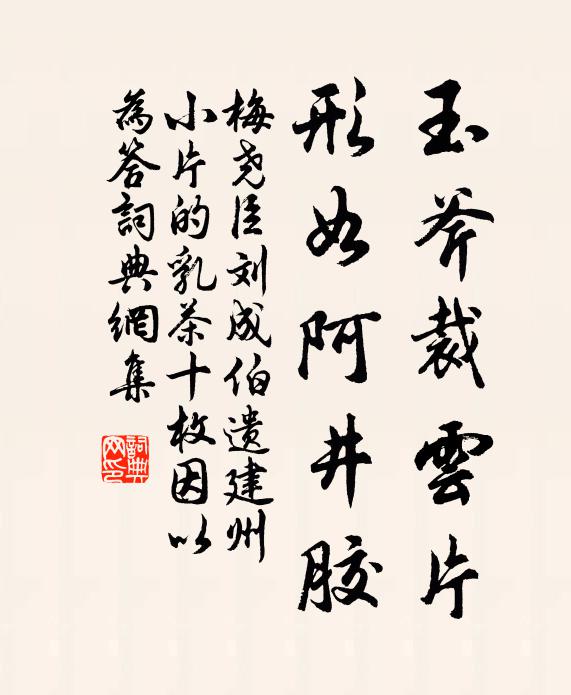 玉斧裁雲片
形如阿井胶
梅尧臣刘成伯遗建州
小片的乳茶十枚因以
為答詞典網集
詞典網印